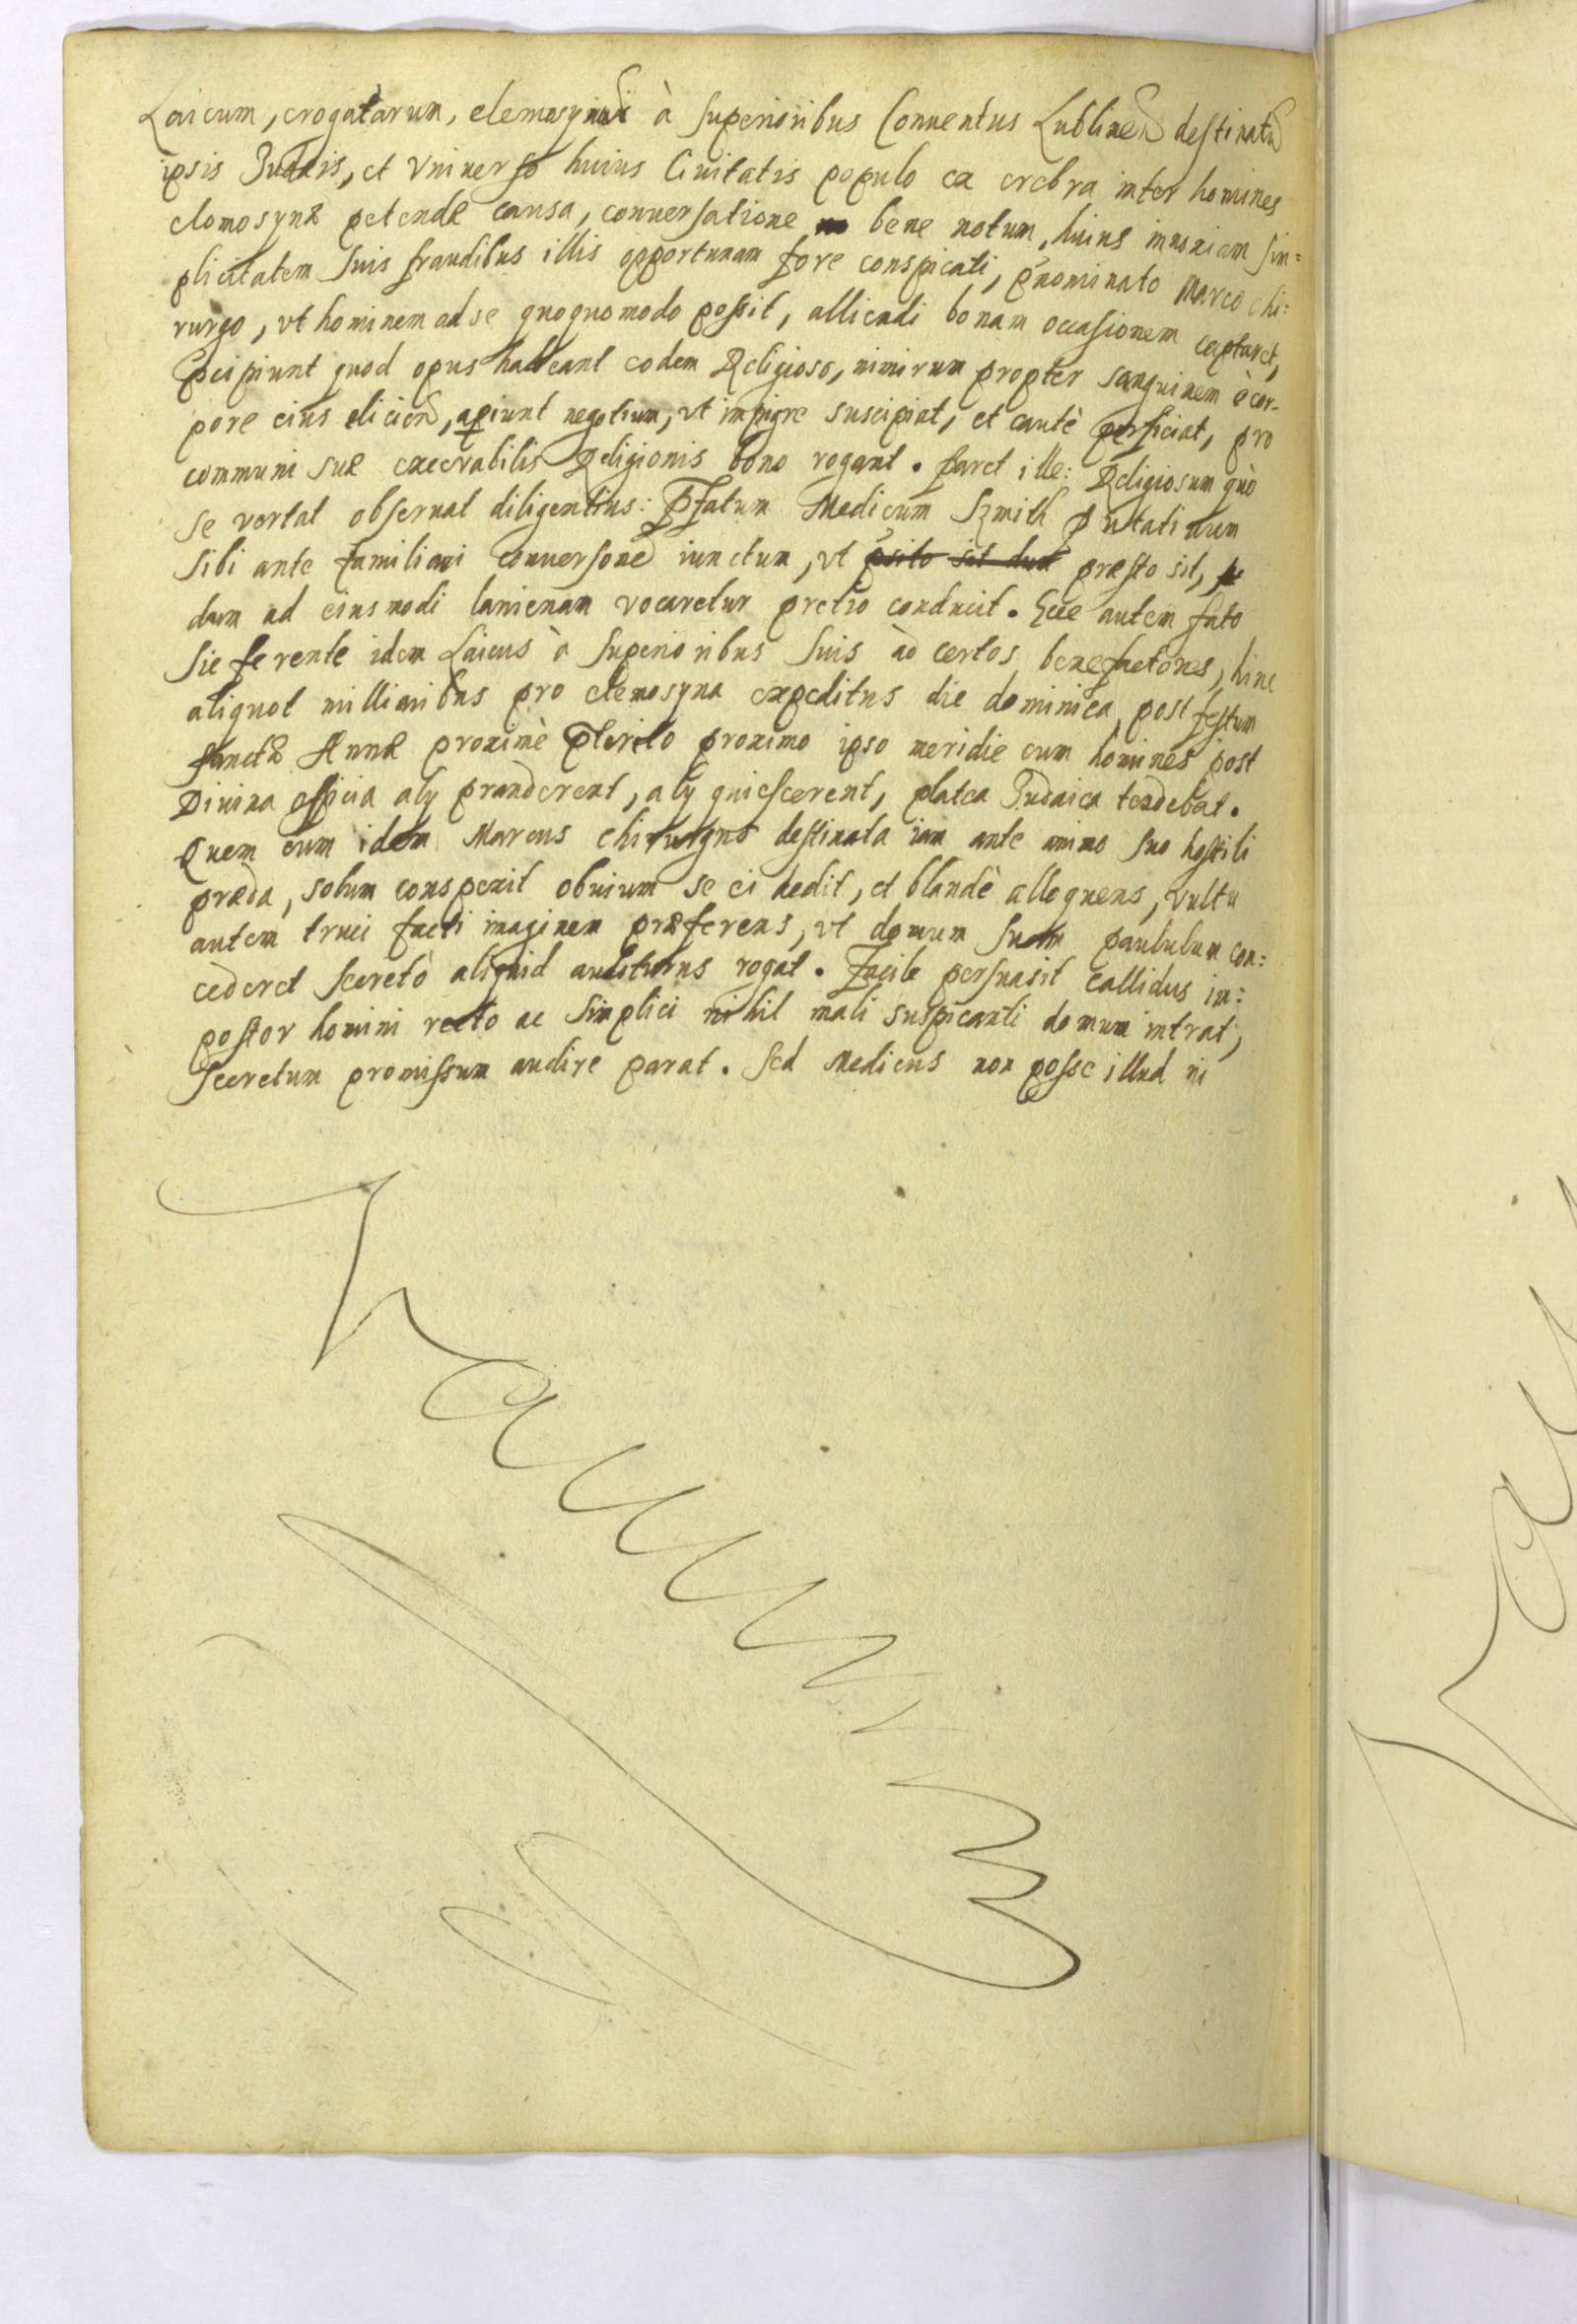 Laicum, erogatarum, elemosynarũ à Superioribus Conuentus Lublinen̄ destinatũ
ipsis Judæis, et Vniuerso huius Ciuitatis populo ex crebra inter homines
elemosynæ petendæ causa, conuersatione bene notum, huius innoxiam sim=
plicitatem suis fraudibus illis opportunam fore conspicati, p̃nominato Marco chi:
rurgo, vt hominem ad se quoquomodo possit, alliciendi bonam occasionem captaret,
p̃cipiunt quod opus habeant eodem Religioso, nimirum propter sanguinem è cor-
pore eius eliciend̄, apiunt negotium, vt impigre suscipiat, et cautè perficiat, pro
communi suæ execrabilis Religionis bono rogant. Paret ille: Religiosum quò
se vertat obseruat diligentius: P̃fatum Medicum Szmith putatiuum
sibi ante familiari conuersone iunctum, vt p̃sito sit dum præsto sit,
dum ad eiusmodi lanienam vocaretur pretio conducit. Ecce autem fato
sic ferente idem Laicus à Superioribus suis ad certos benefactores, hinc
aliquot milliaribus pro elemosyna expeditus die dominica post festum
Sanctæ Annæ proximè p̃terito proximo ipso meridie cum homines post
Diuina officia alÿ pranderent, alÿ quiescerent, platea Judaica tendebat.
Quem cum idem Marcus chirurgus destinata iam ante animo suo hostili
præda, solum conspexit obuium se ei dedit, et blandè alloquens, vultu
autem truci facti imaginem præferens, vt domum suam paululum con:
cederet secretò aliquid auditurus rogat. Facile persuasit callidus im:
postor homini recto ac simplici nihil mali suspicanti domum intrat,
Secretum promissum audire parat. Sed Medicus non posse illud ni